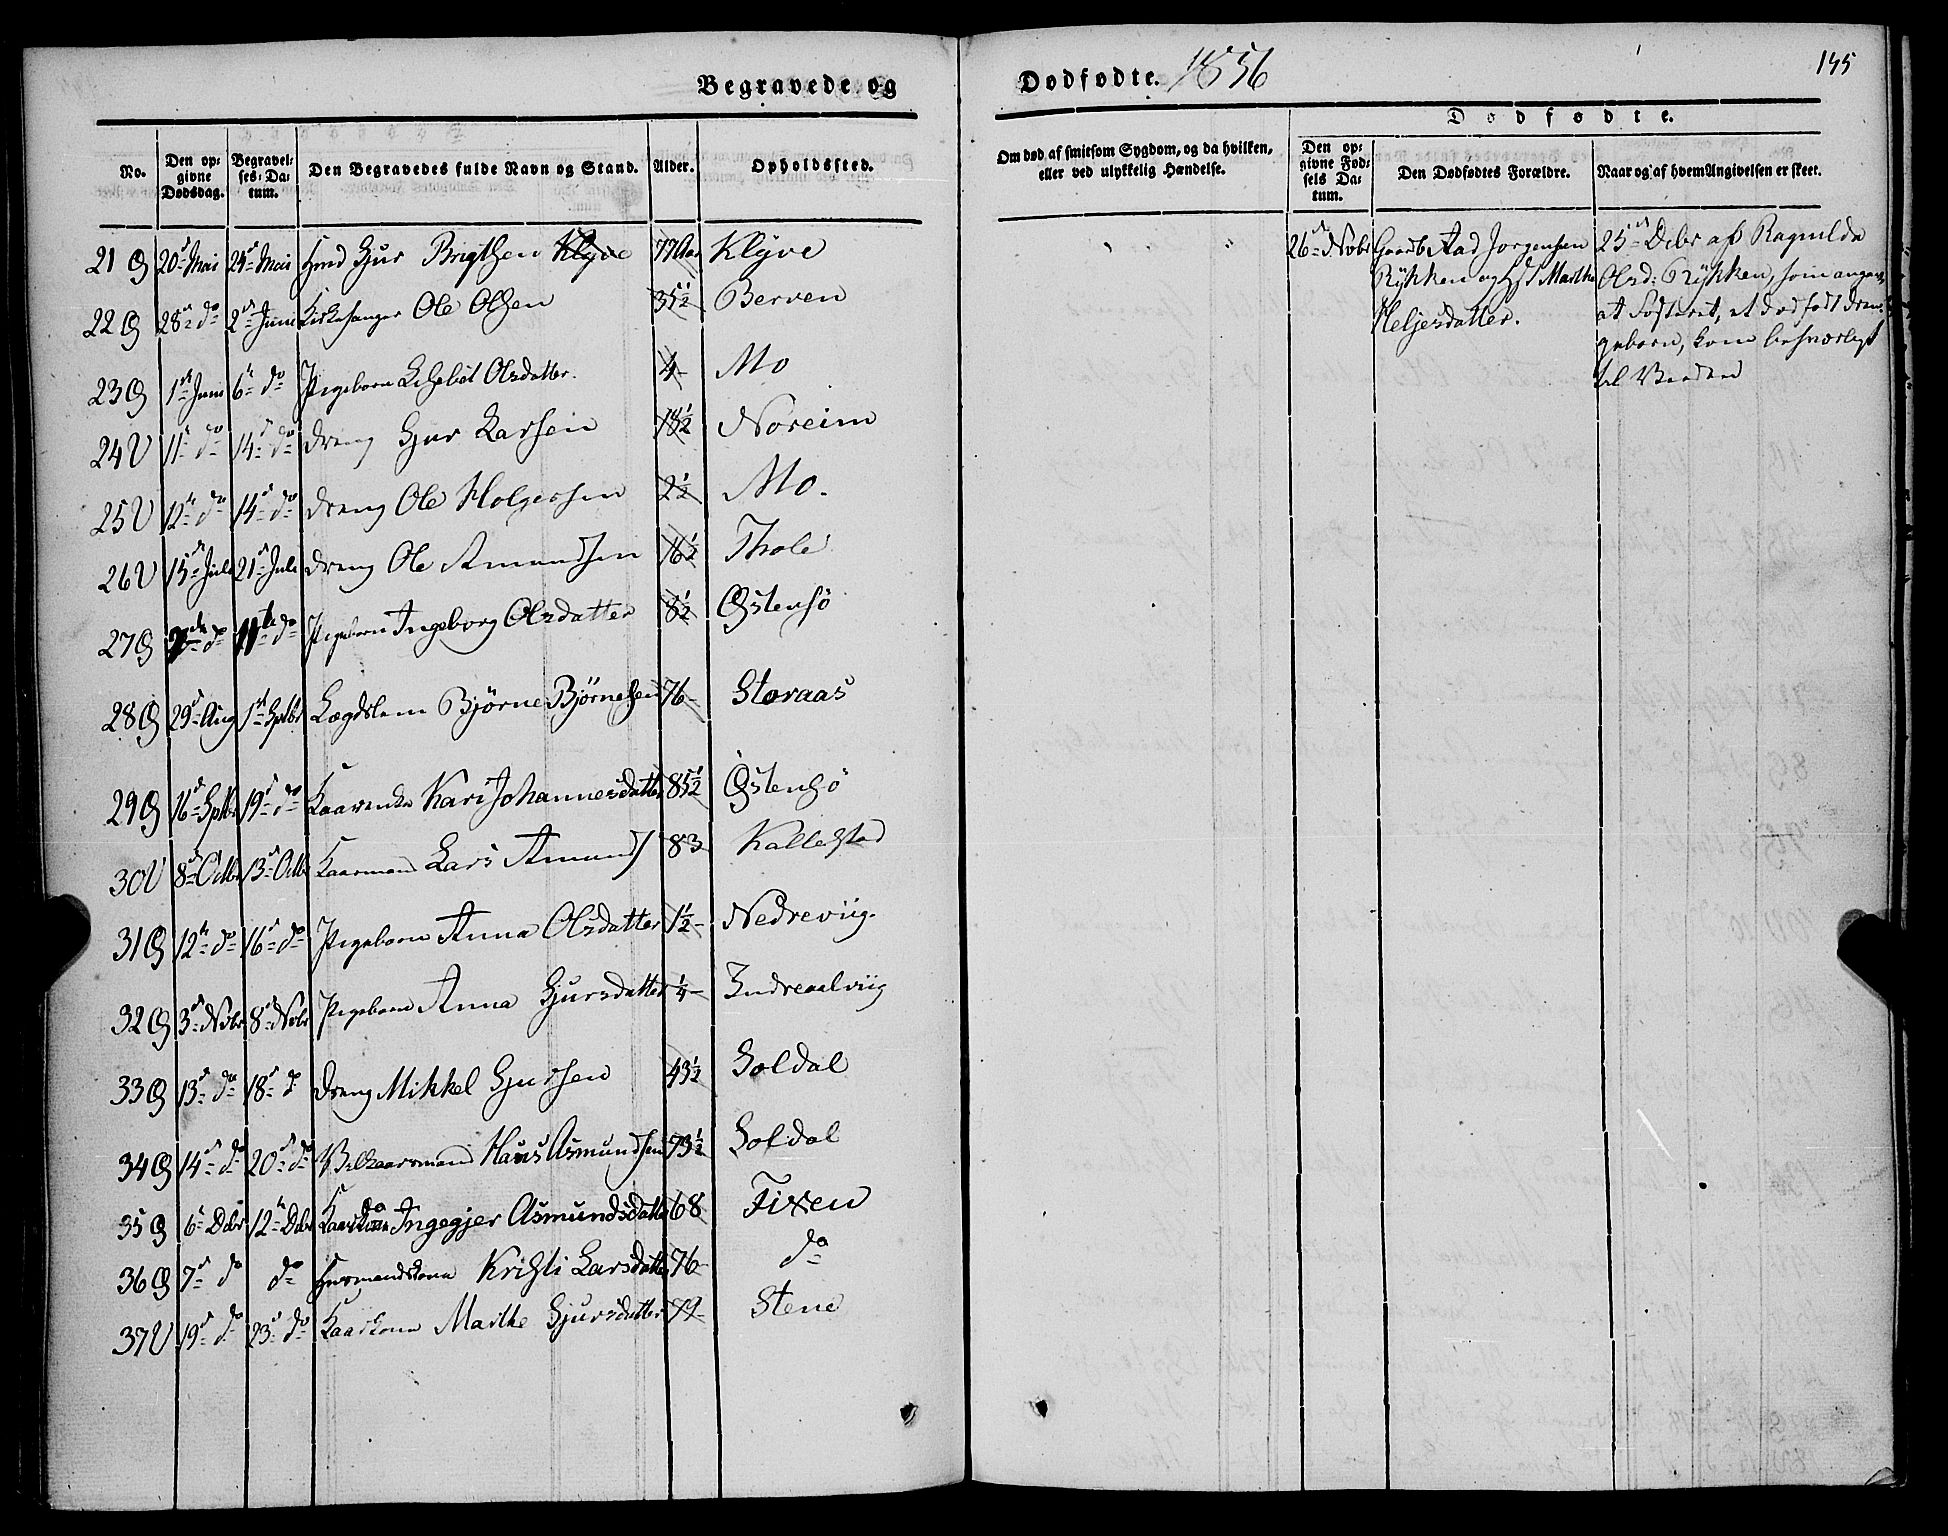 Begravede og
No. Den opgivne Dødsdag. Begravelses-Datum. Den Begravedes fulde Navn og Stand. Alder. Opholdssted.
21 Ø 20de Mai 25de Mai Sjur Brigtsen Klyve 77 Aar Klyve
22 Ø 28de do 2den Juni Kirkesanger Ole Olsen 35½ Berven
23 Ø 1ste Juni 6te do Pigebarn Lisebet Olsdatter. 4 Mo
24 V 11te do 14de do Dreng Sjur Larsen 18½ Noreim
25 V 12te do 14de do Dreng Ole Holgersen 2½ Mo.
26 V 15de Juli 21de Juli Dreng Ole Amundsen 16½ Thole
27 Ø do 11te do Pigebarn Ingeborg Olsdatter 8½ Østensö
28 Ø 29de Aug 1ste Sptbr Lægdslem Bjørne Bjørnesen 76 Storaas
29 Ø 16de Sptbr 19de do Kaarenke Kari Johannesdatter 85½ Østensö
30 V 8de Octbr 13de Octbr Kaarmand Lars Amunds 83 Kallestad
31 Ø 12te do 16de do Pigebarn Anna Olsdatter 1½ Nedreviig.
32 Ø 3de Novbr 8de Novbr Pigebarn Anna Sjursdatter ¼ Indreaalviig
33 Ø 13de do 18de do Dreng Mikkel Sjursen 43½ Soldal
34 Ø 14de do 20de do Hans Asmundsen 73½ Soldal
35 Ø 6te Debr 12te Debr Kaarkona Ingegjer Asmundsdatter 68 Fixen
36 Ø 7de do do Husmandskona Kristi Larsdatter 76 do
37 V 19de do 23de do Kaarkona Marthe Sjursdatter 79 Stene
Dødfødte. 1856
155
Dødfødte.
Om død af smitsom Sygdom, og da hvilken, eller ved ulykkelig Hændelse. Den opgivne Fødsels Datum. Den Dødfødtes Forældre. Naar og af hvem Angivelsen er skeet.
26de Novbr Gaardb Aad Jorgensen 25de Debr af Ragnilda
Rykken og Marthe Olsd: Rykken, som angav,
Heljesdatter. at Fosteret, et dødfødt Dren-
gebarn, kom besværligt
til Verden